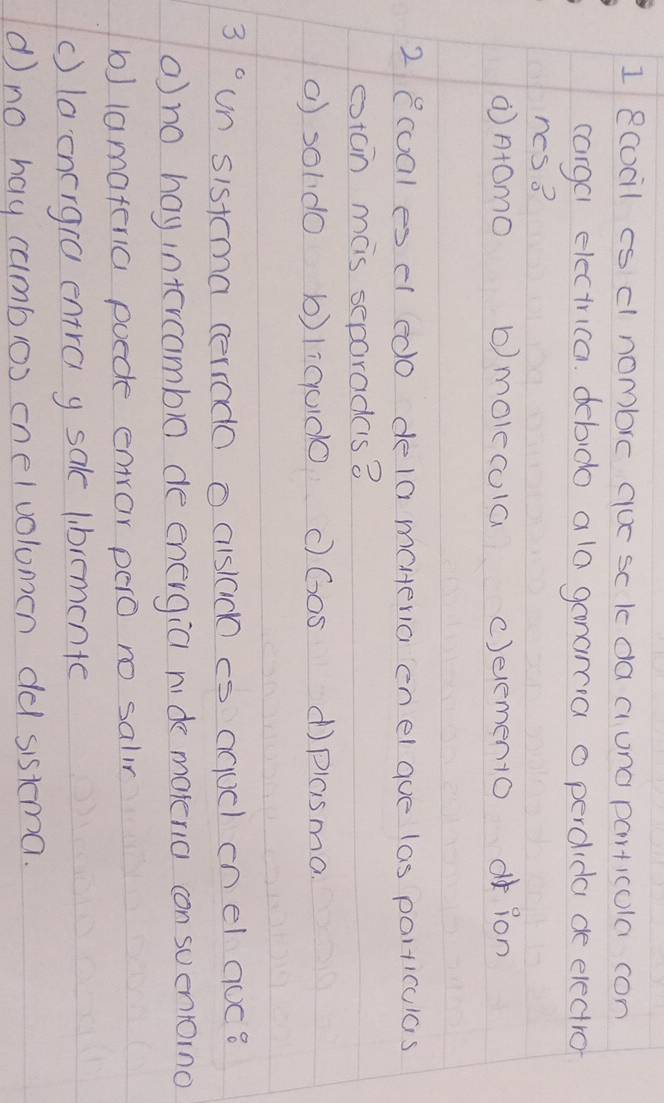 1 ¿cuál es el nombre que se le da a una particula con
carga electrica. debido a la ganancia o perdida de electro
nes?
a) Atomo b) molecula c) elemento d) ion
2 ¿cual es el edo de la materia en el que las particulas
están más separadas?
a) solido b) liquido c) Gas d) Plasma.
3 un sistema cerrado o aislado es aquel en el que:
a) no hay intercambio de energía ni de materia con su entorno
b) la materia puede entrar pero no salir
c) la energía entra y sale libremente
d) no hay cambios en el volumen del sistema.